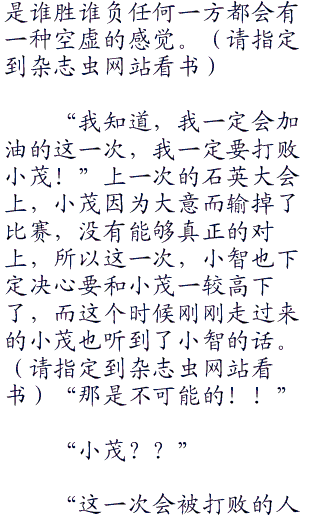 是谁胜谁负任何一方都会有
一种空虚的感觉。（请指定
到杂志虫网站看书）
“我知道，我一定会加
油的这一次，我一定要打败
小茂！”上一次的石英大会
上，小茂因为大意而输掉了
比赛，没有能够真正的对
上，所以这一次，小智也下
定决心要和小茂一较高下
了，而这个时候刚刚走过来
的小茂也听到了小智的话。
（请指定到杂志虫网站看
书）“那是不可能的！！”
“小茂？？”
“这一次会被打败的人